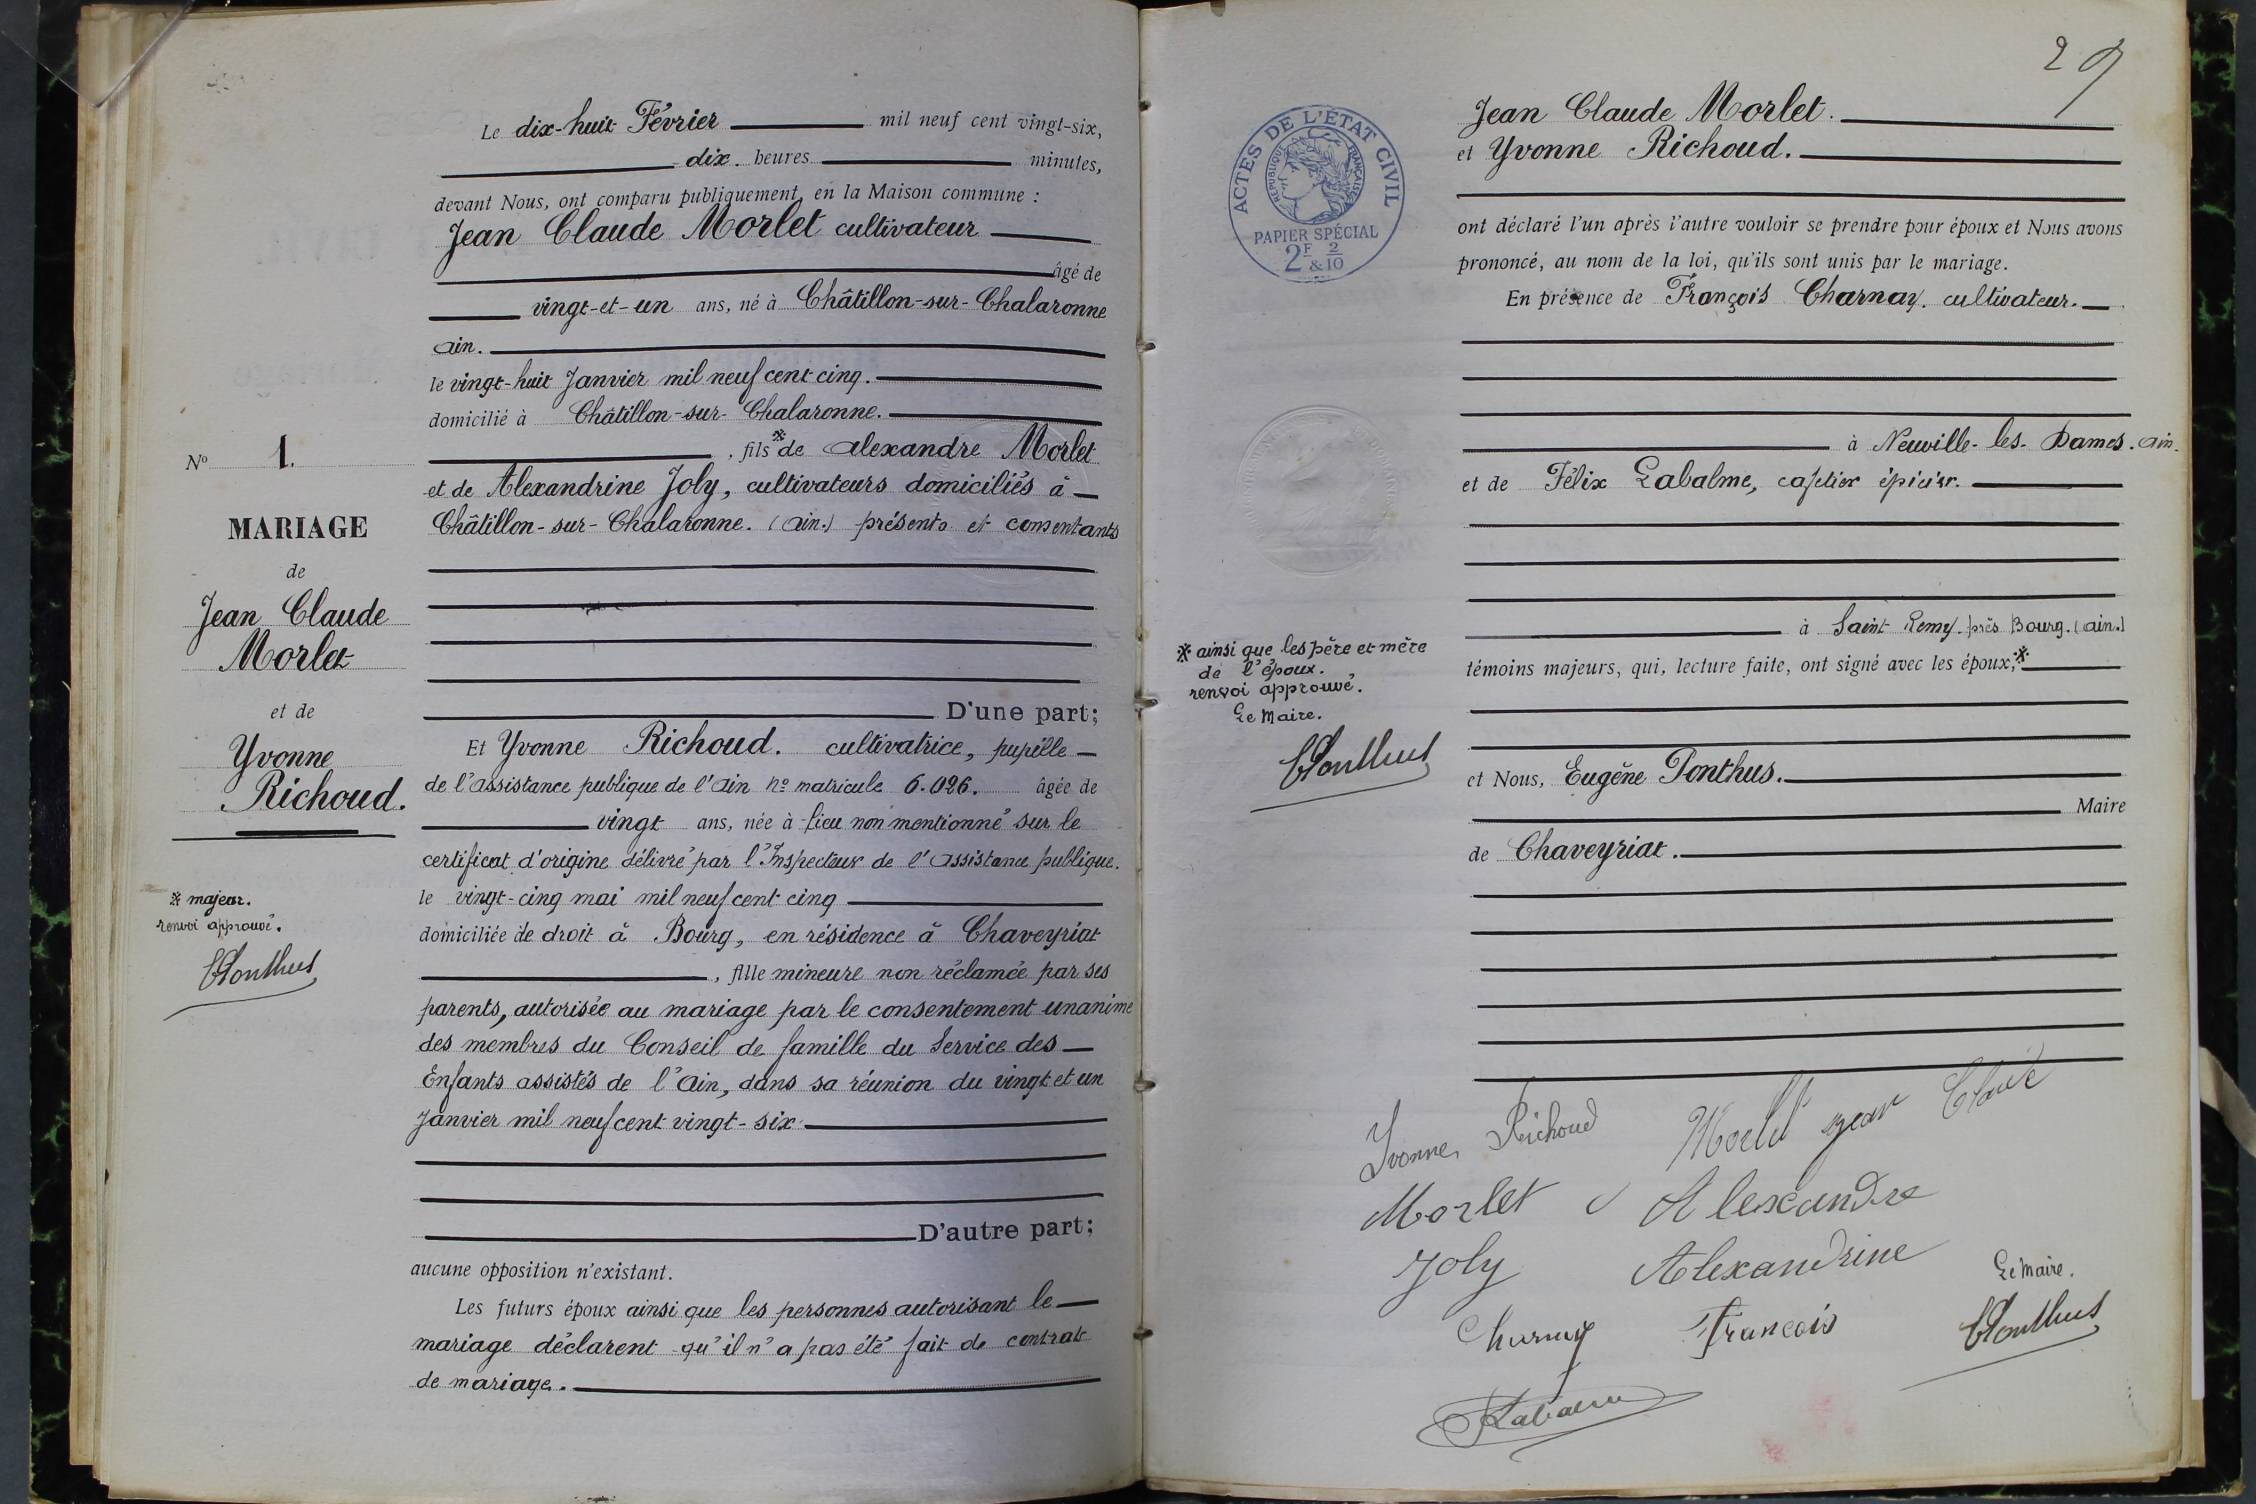 Le dix-huit Février mil neuf cent vingt-six,
dix. heures minutes,
devant Nous, ont comparu publiquement, en la Maison commune :
Jean Claude Morlet cultivateur
âgé de
vingt-et-un ans, né à Châtillon-sur-Chalaronne
ain.
le vingt-huit Janvier mil neuf cent cinq.
domicilié à Châtillon-sur-Chalaronne.
, fils * de Alexandre Morlet
et de Alexandrine Joly, cultivateurs domiciliés à
Châtillon-sur-Chalaronne. (Ain.) présents et consentants
D'une part;
Et Yvonne Richoud. cultivatrice, pupille
de l'Assistance publique de l'Ain no matricule 6.026. âgée de
vingt ans, née à lieu non mentionné sur le
certificat d'origine délivré par l'Inspecteur de l'Assistance publique.
le vingt-cinq mai mil neuf cent cinq
domiciliée de droit à Bourg, en résidence à Chaveyriat
, fille mineure non réclamée par ses
parents, autorisée au mariage par le consentement unanime
des membres du Conseil de famille du Service des
Enfants assistés de l'Ain, dans sa réunion du vingt et un
Janvier mil neuf cent vingt-six.
D'autre part;
aucune opposition n'existant.
Les futurs époux ainsi que les personnes autorisant le
mariage déclarent qu'il n'a pas été fait de contrat
de mariage.
No 1.
MARIAGE
de
Jean Claude
Morlet
et de
Yvonne
Richoud.
* majeur.
renvoi approuvé.
EPonthus
ACTES DE L'ÉTAT CIVIL
RÉPUBLIQUE FRANÇAISE
PAPIER SPÉCIAL
2F & 2/10
Jean Claude Morlet.
et Yvonne Richoud.
ont déclaré l'un après l'autre vouloir se prendre pour époux et Nous avons
prononcé, au nom de la loi, qu'ils sont unis par le mariage.
En présence de François Charnay. cultivateur.
à Neuville-les-Dames. Ain.
et de Félix Labalme, cafetier épicier.
à Saint Remy. près Bourg. (Ain.)
témoins majeurs, qui, lecture faite, ont signé avec les époux, *
et Nous, Eugène Ponthus.
Maire
de Chaveyriat.
* ainsi que les père et mère
de l'époux.
renvoi approuvé.
Le Maire.
EPonthus
Yvonne Richoud Morlet Jean Claude
Morlet Alexandre
Joly Alexandrine
Le Maire.
Charnay François
EPonthus
Labalme